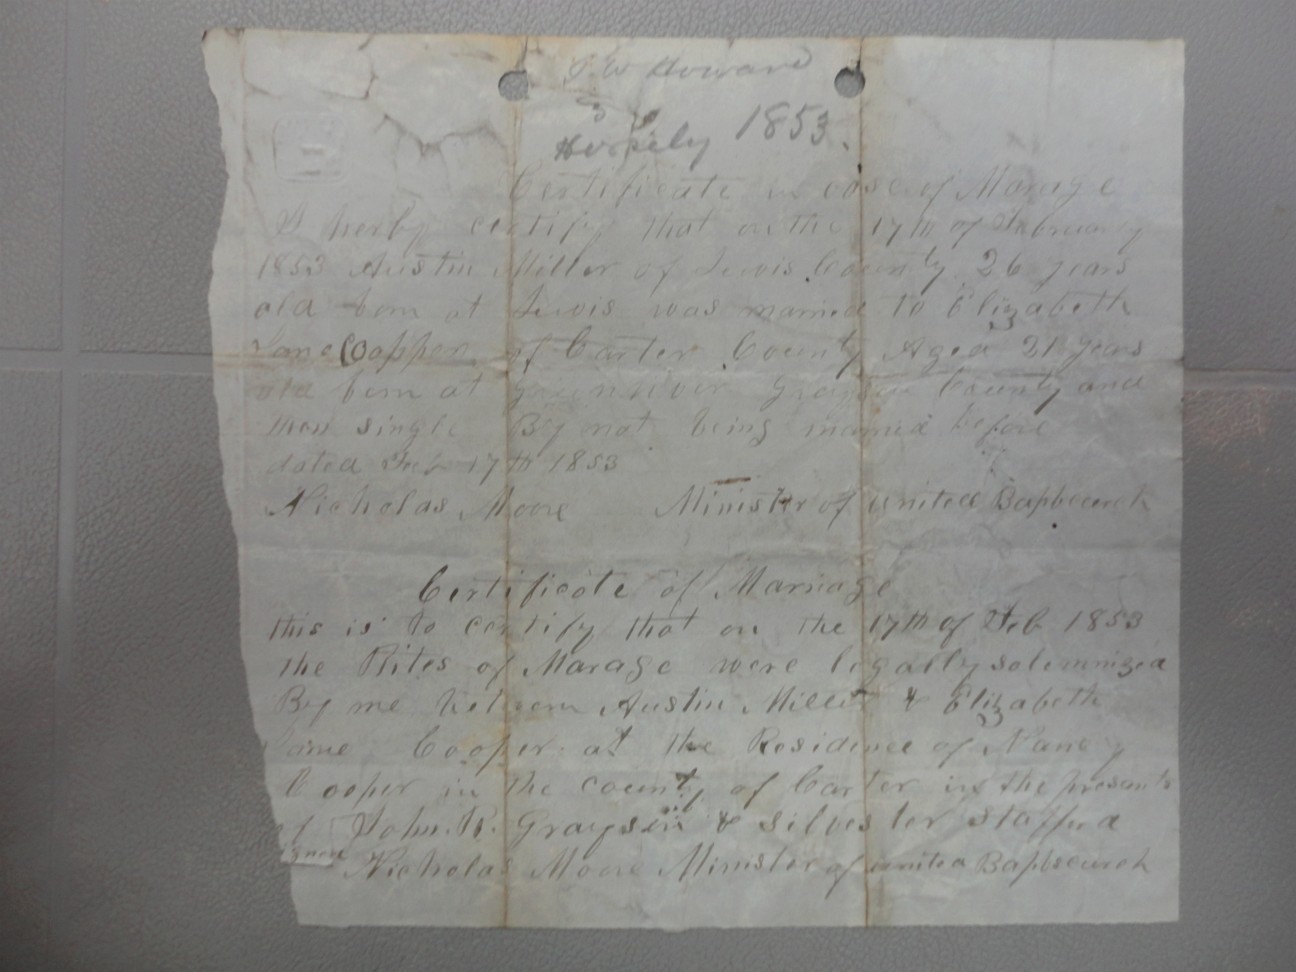 J. W Howard
1853.
Certificate in case of Marage
I herby certify that on the 17th of February
1853 Austin Miller of Lewis County 26 years
old born at Lewis was married to Elizabeth
Jane Copper of Carter County Aged 21 years
old born at Grayson County and
then single By not being married before
dated Feb 17th 1853
Nicholas Moore Minister of united Bapbcurch
Certificate of Marriage
this is to certify that on the 17th of Feb 1853
the Rites of Marage were legally solemnized
By me between Austin Miller & Elizabeth
Jane Cooper at the Residence of Nancy
Cooper in the county of Carter in the presents
of John. R. Grayson & Silvester Stafford
signed Nicholas Moore Minister of united Bapbscurch